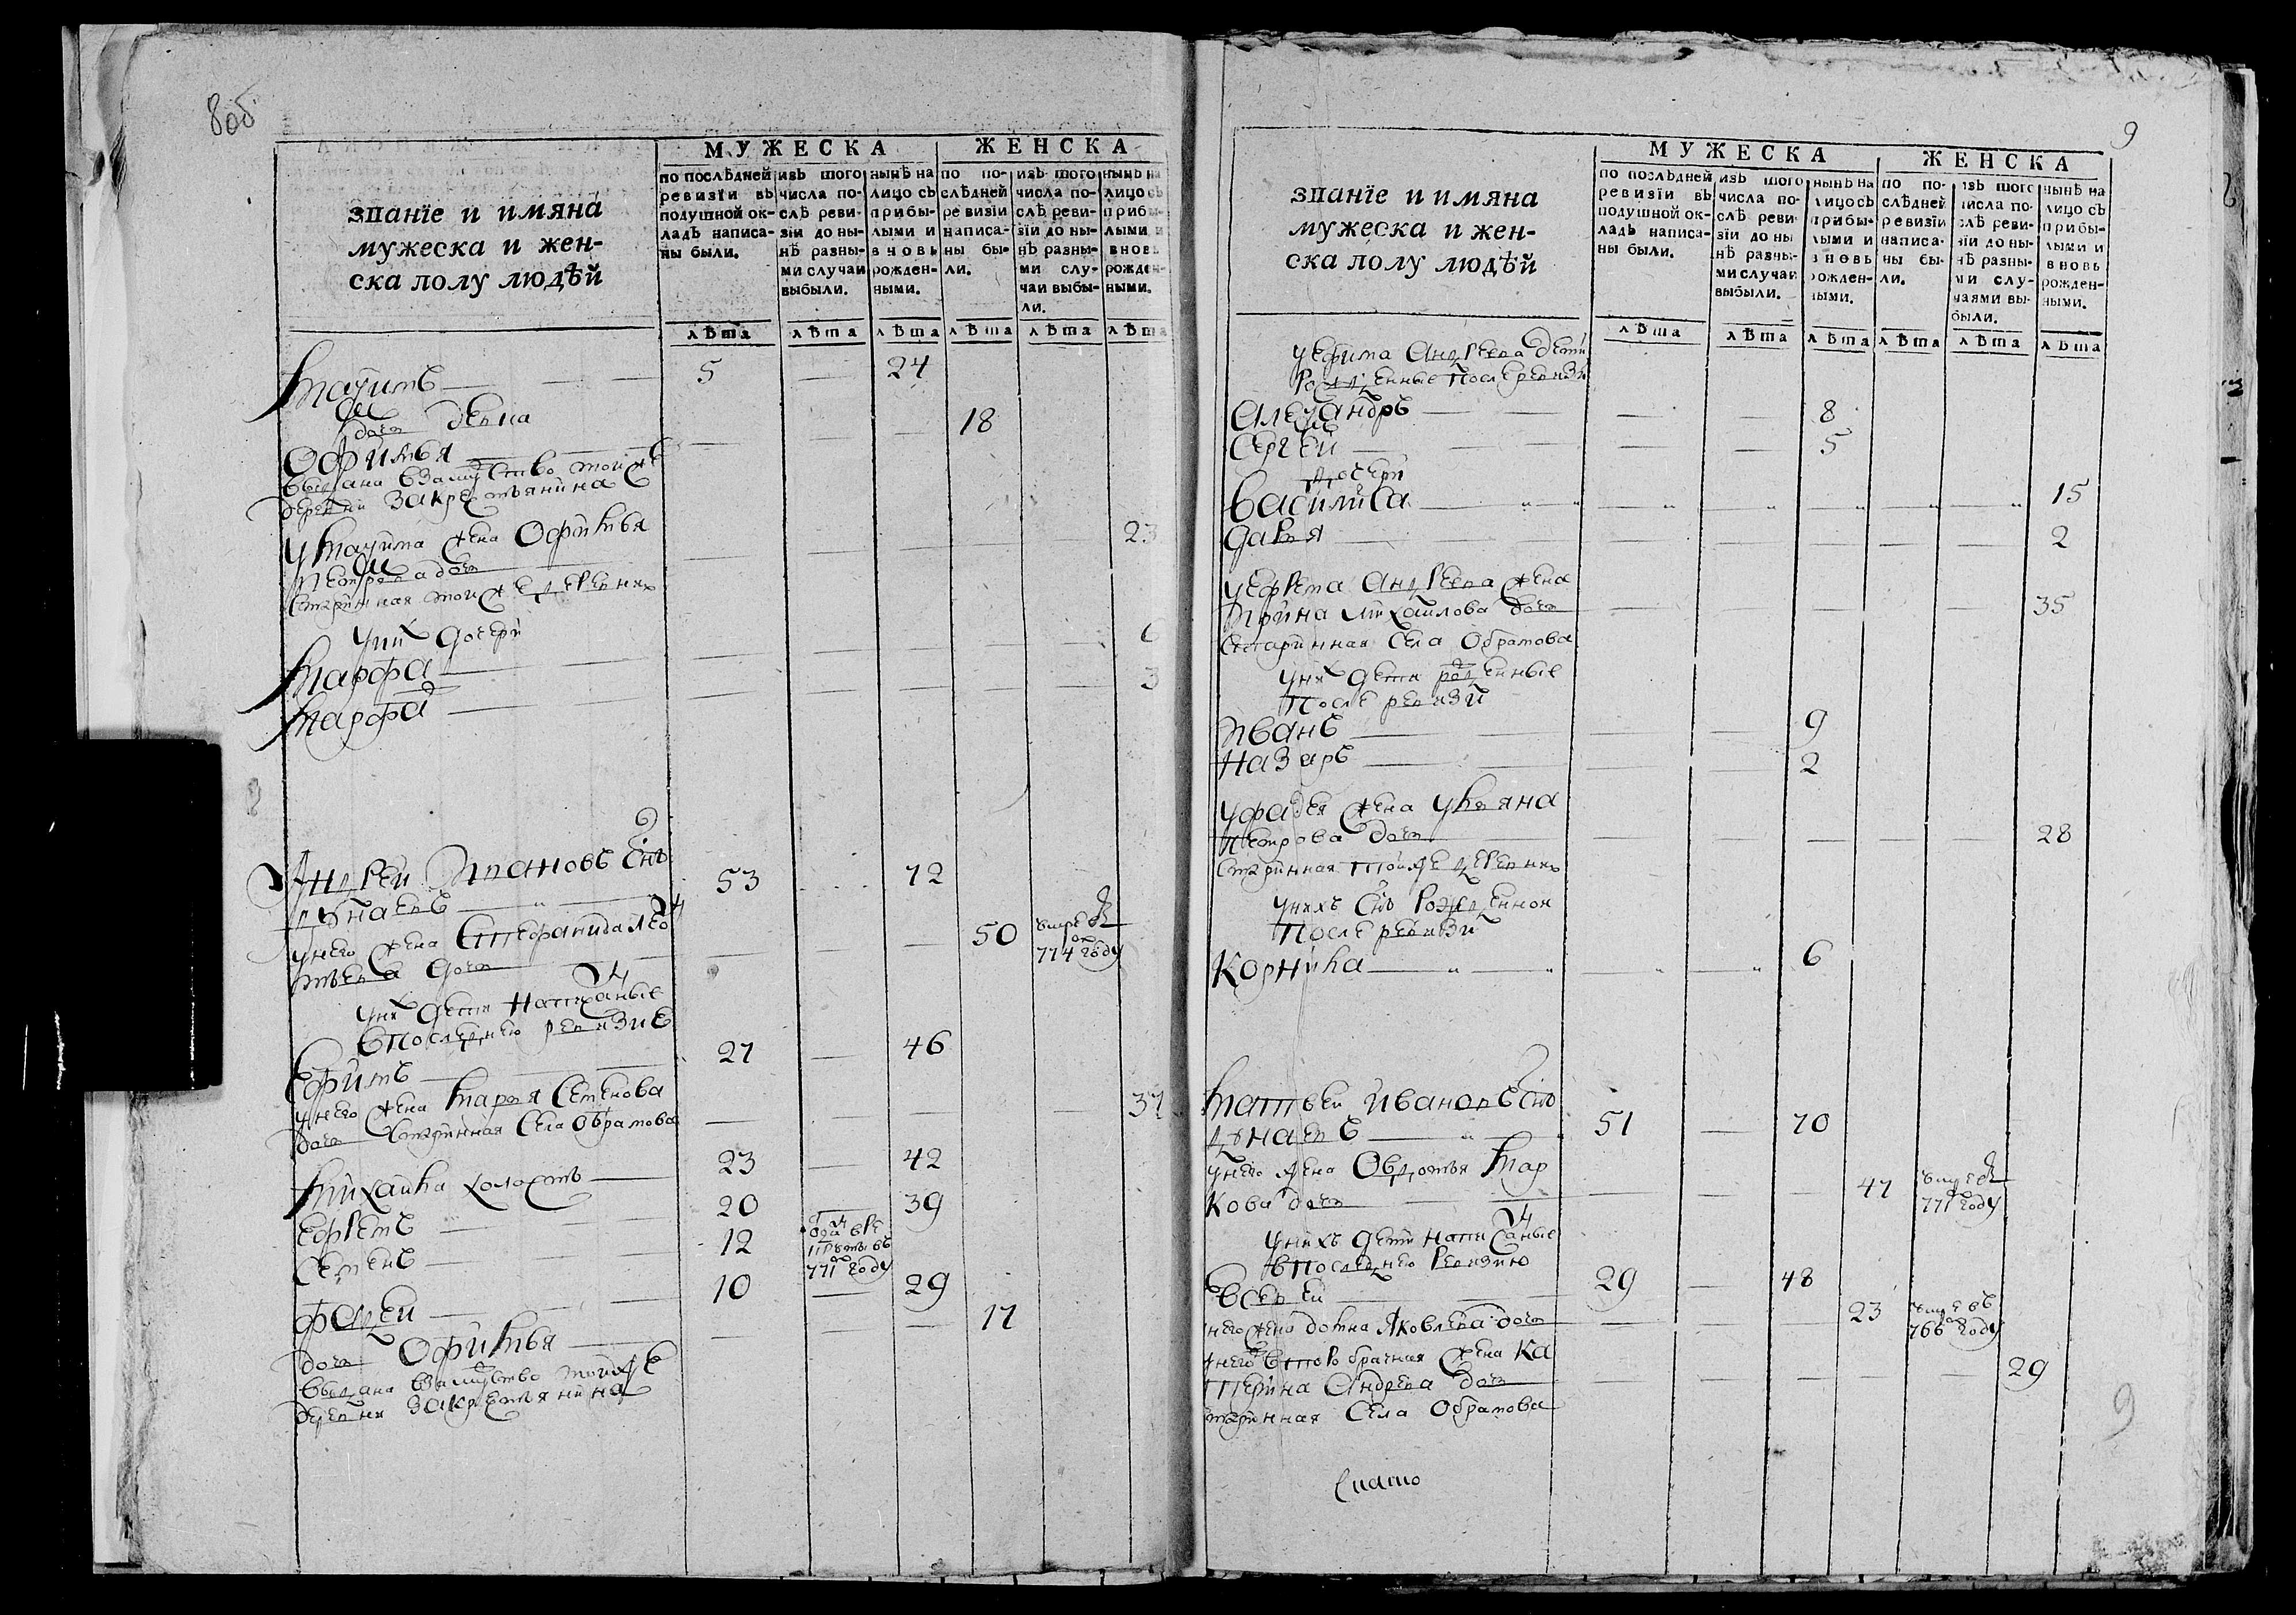 8об
МУЖЕСКА ЖЕНСКА
званїе и имяна
мужеска и жен-
ска полу людѣй
по послѣдней
ревизїи въ
подушной ок-
ладъ написа-
ны были.
изъ того
числа по-
слѣ реви-
зїи до ны-
нѣ разны-
ми случаи
выбыли.
нынѣ на
лицо съ
прибы-
лыми и
вновь
рожден-
ными.
по по-
слѣдней
ревизїи
написа-
ны бы-
ли.
изъ того
числа по-
слѣ реви-
зїи до ны-
нѣ разны-
ми слу-
чаи выбы-
ли.
нынѣ на
лицо съ
прибы-
лыми и
вновь
рожден-
ными.
лѣта лѣта лѣта лѣта лѣта лѣта
5 24
дочь девка
Офимья 18
выдана взамуство тойже
деревни за крестьянина
жена Офимья 23
Петрова дочь
старинная тойже деревни
у них дочери
Марфа 6
Марфа 3
Андрей Ивановъ снъ
Дунаевъ 53 72
у него жена Стефанида Лео
нтьева дочь 50 умре въ
774 году
у них дети написаные
в последнею ревизию
Ефимъ 27 46
у него жена Марья Семенова
дочь старинная села Обрамова 37
Михайла холостъ 23 42
Ефремъ 20 39
Семенъ 12 отда в ре
круты въ
771 году
Фадей 10 29
дочь Офимья 17
выдана взамуство тойже
деревни за крестьянина
9
МУЖЕСКА ЖЕНСКА
званїе и имяна
мужеска и жен-
ска полу людѣй
по послѣдней
ревизїи въ
подушной ок-
ладъ написа-
ны были.
изъ того
числа по-
слѣ реви-
зїи до ны
нѣ разны-
ми случаи
выбыли.
нынѣ на
лицо съ
прибы-
лыми и
вновь
рожден-
ными.
по по-
слѣдней
ревизїи
написа-
ны бы-
ли.
изъ того
числа по-
слѣ реви-
зїи до ны-
нѣ разны-
ми слу-
чаями вы-
были.
нынѣ на
лицо съ
прибы-
лыми и
вновь
рожден-
ными.
лѣта лѣта лѣта лѣта лѣта лѣта
У Ефима Андреева дети
рожденные после ревизи
Александръ 8
Сергей 5
дочери
Василиса 15
Дарья 2
У Ефрема Андреева жена
Ирина Михайлова дочь 35
старинная села Обрамова
у них дети рожденные
после ревизи
Иванъ 9
Назаръ 2
У Фадея жена Ульяна
Петрова дочь 28
старинная тойже деревни
у нихъ снъ рожденной
после ревизи
Корнила 6
Матвей Ивановъ снъ
Дунаевъ 51 70
у него жена Овдотья Мар
кова дочь 47 умре въ
771 году
у нихъ дети написаные
в последнею ревизию
Евсевей 29 48
него жена Домна Яковлева дочь 23 умре въ
766 году
у него второбрачная жена Ка
терина Андреева дочь 29
старинная села Обрамова
9